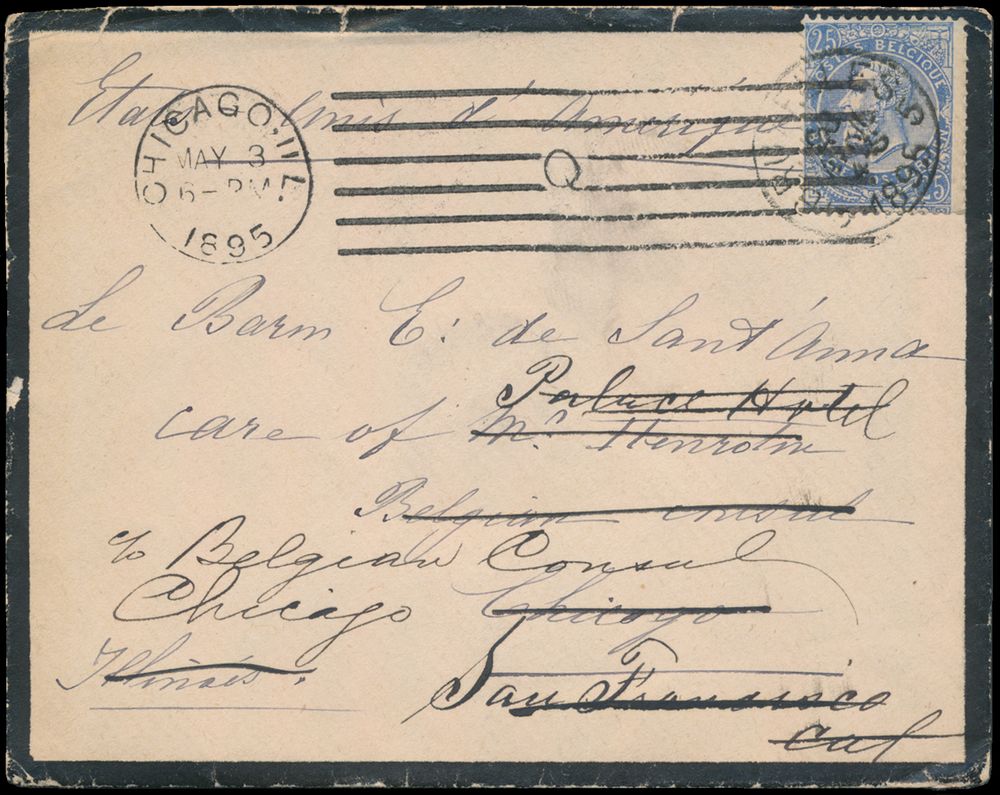 Etats Unis d'Amérique
CHICAGO, ILL.
MAY 3
6-PM
1895
Q
25
POSTES BELGIQUE
25
1895
Le Baron E. de Sant'Anna
Palace Hotel
care of Mr. Henrotin
Belgian consul
c/o Belgian Consul
Chicago Chicago
Illinois.
San Francisco
Cal